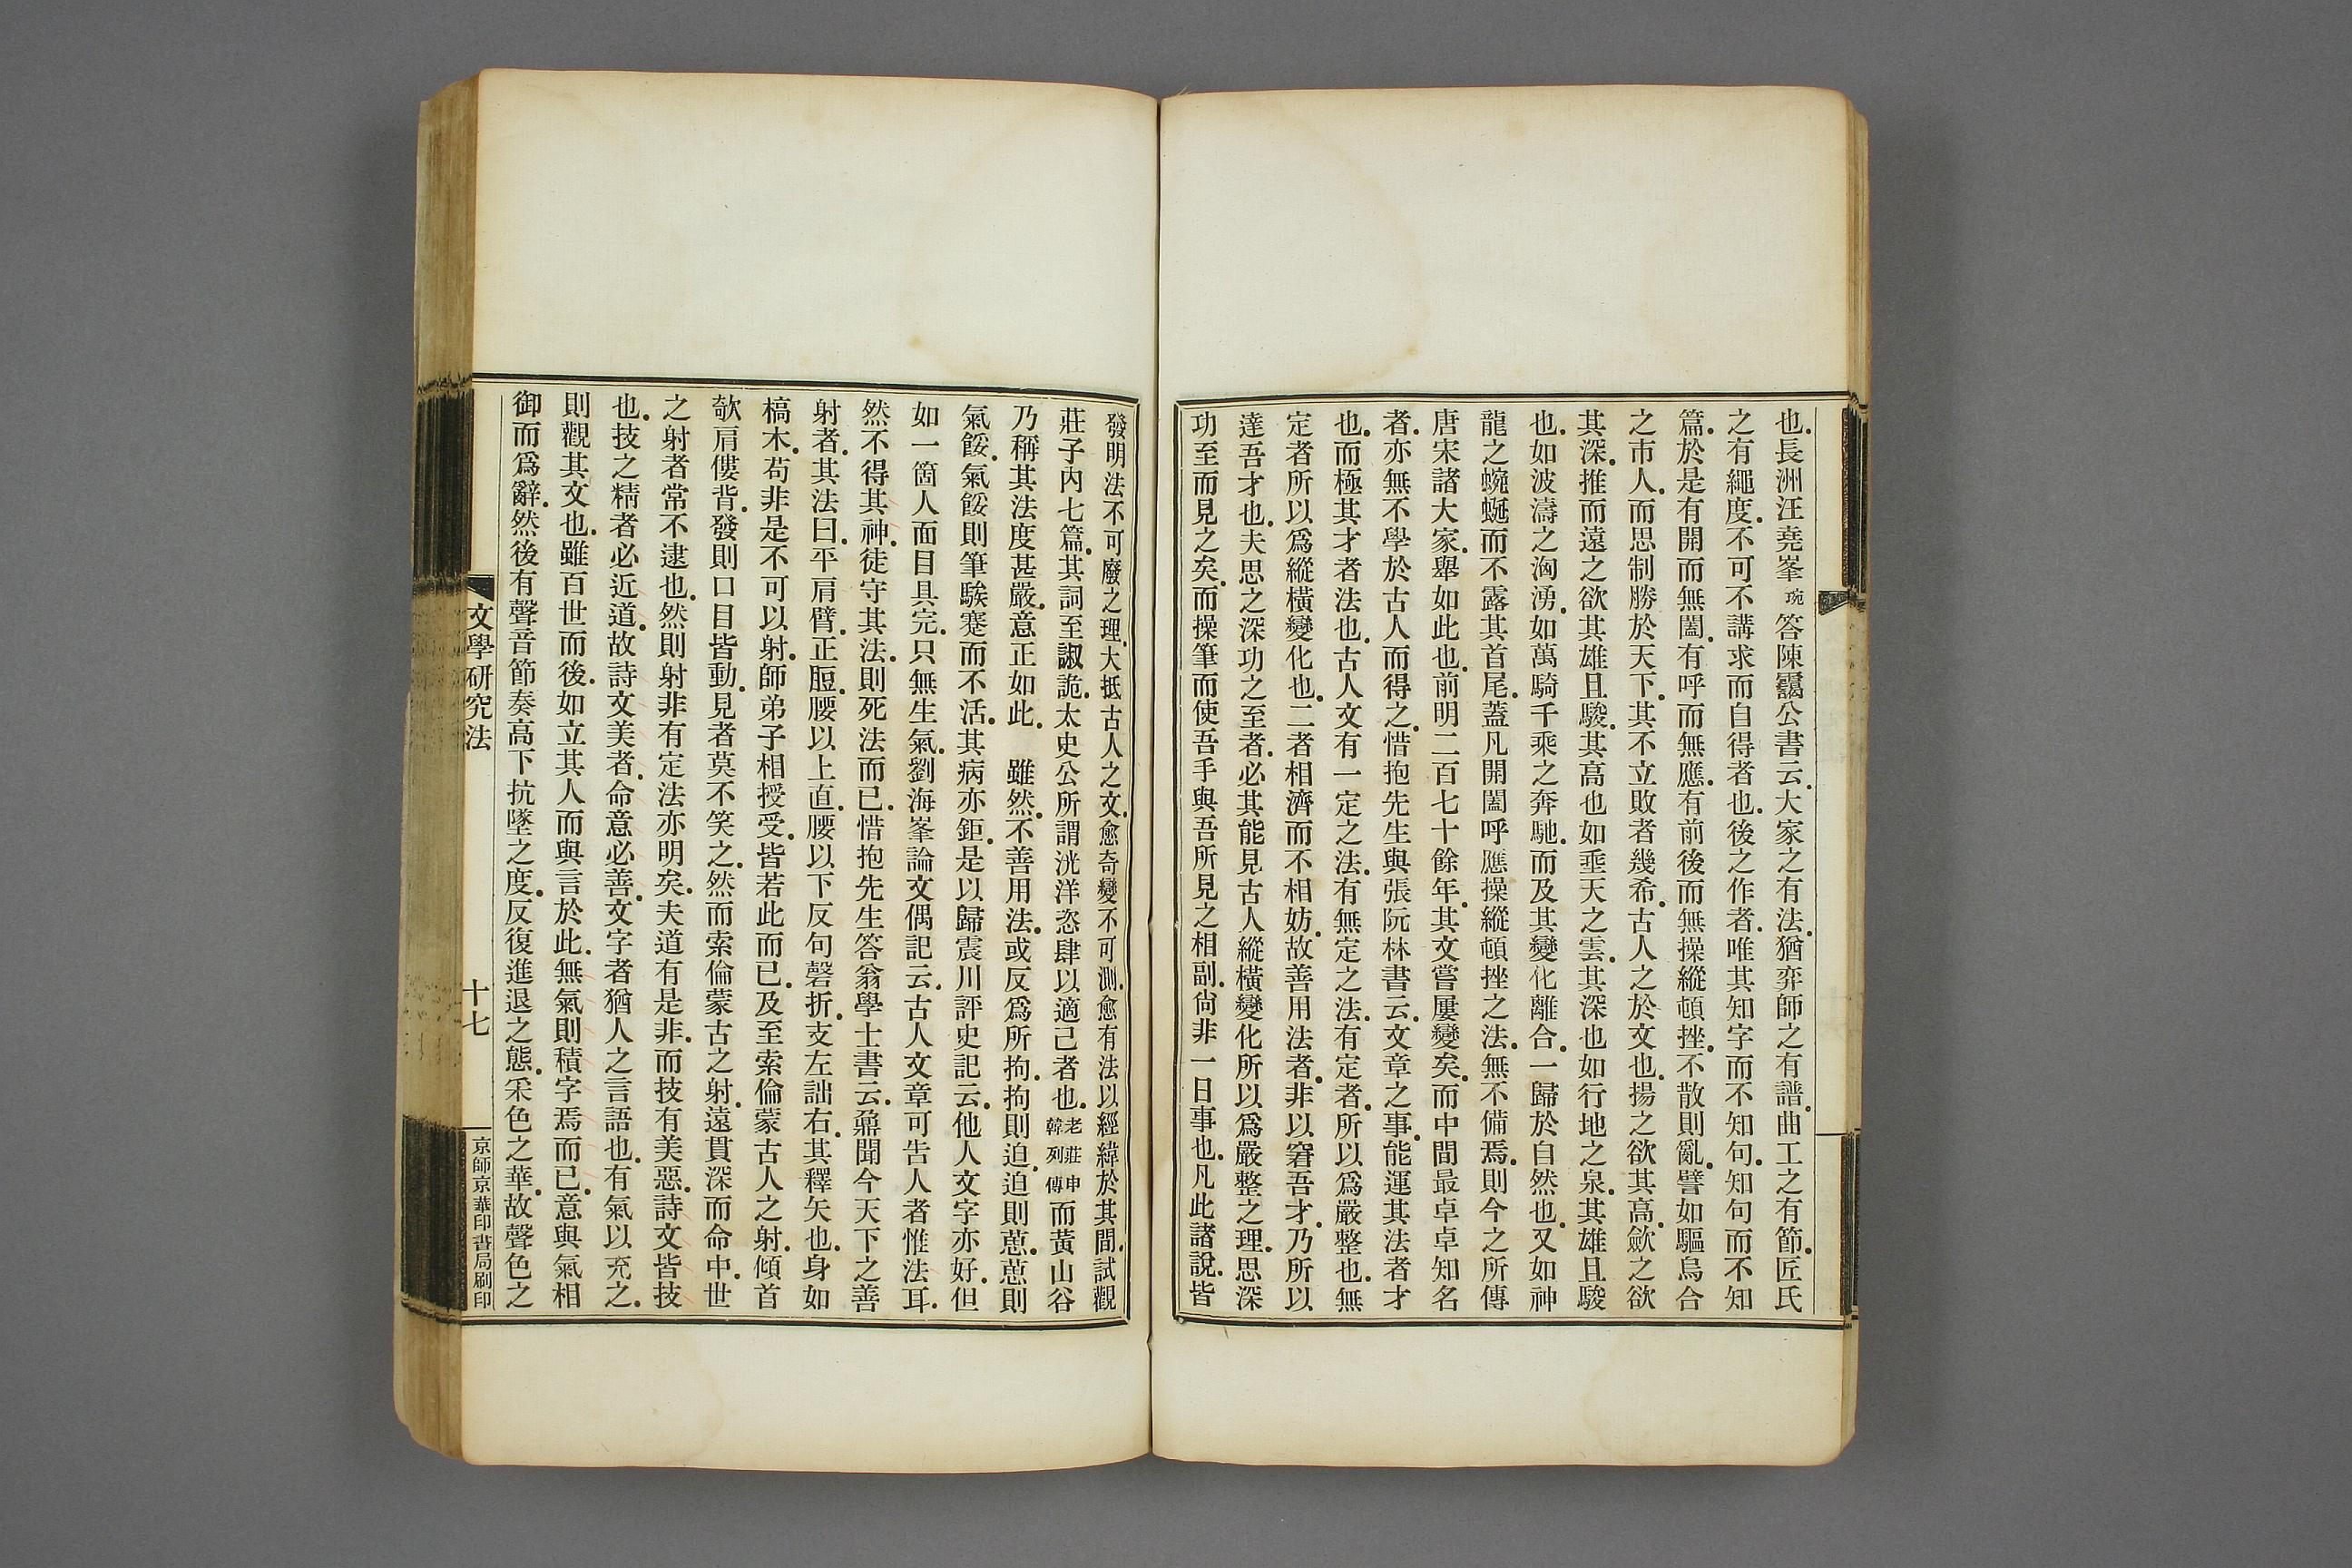 也長洲汪堯峯琬答陳靄公書云大家之有法猶弈師之有譜曲工之有節匠氏
之有繩度不可不講求而自得者也後之作者唯其知字而不知句知句而不知
篇於是有開而無闔有呼而無應有前後而無操縱頓挫不散則亂譬如驅烏合
之市人而思制勝於天下其不立敗者幾希古人之於文也揚之欲其高歛之欲
其深推而遠之欲其雄且駿其高也如垂天之雲其深也如行地之泉其雄且駿
也如波濤之洶湧如萬騎千乘之奔馳而及其變化離合一歸於自然也又如神
龍之蜿蜒而不露其首尾蓋凡開闔呼應操縱頓挫之法無不備焉則今之所傳
唐宋諸大家舉如此也前明二百七十餘年其文嘗屢變矣而中間最卓卓知名
者亦無不學於古人而得之惜抱先生與張阮林書云文章之事能運其法者才
也而極其才者法也古人文有一定之法有無定之法有定者所以爲嚴整也無
定者所以爲縱橫變化也二者相濟而不相妨故善用法者非以窘吾才乃所以
達吾才也夫思之深功之至者必其能見古人縱橫變化所以爲嚴整之理思深
功至而見之矣而操筆而使吾手與吾所見之相副尙非一日事也凡此諸說皆
發明法不可廢之理大抵古人之文愈奇變不可測愈有法以經緯於其間試觀
莊子內七篇其詞至諔詭太史公所謂洸洋恣肆以適己者也老莊申韓列傳而黃山谷
乃稱其法度甚嚴意正如此　雖然不善用法或反爲所拘拘則迫迫則葸葸則
氣餒氣餒則筆騃蹇而不活其病亦鉅是以歸震川評史記云他人文字亦好但
如一箇人面目具完只無生氣劉海峯論文偶記云古人文章可告人者惟法耳
然不得其神徒守其法則死法而已惜抱先生答翁學士書云鼐聞今天下之善
射者其法曰平肩臂正脰腰以上直腰以下反句磬折支左詘右其釋矢也身如
槁木苟非是不可以射師弟子相授受皆若此而已及至索倫蒙古人之射傾首
欹肩僂背發則口目皆動見者莫不笑之然而索倫蒙古之射遠貫深而命中世
之射者常不逮也然則射非有定法亦明矣夫道有是非而技有美惡詩文皆技
也技之精者必近道故詩文美者命意必善文字者猶人之言語也有氣以充之
則觀其文也雖百世而後如立其人而與言於此無氣則積字焉而已意與氣相
御而爲辭然後有聲音節奏高下抗墜之度反復進退之態采色之華故聲色之
文學研究法
十七
京師京華印書局刷印